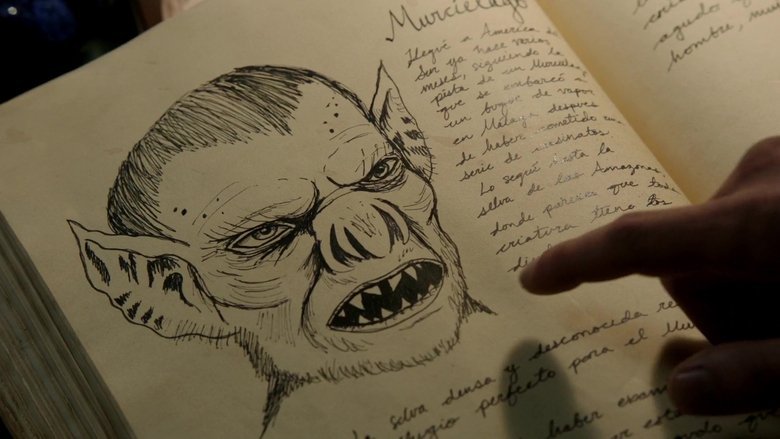 Murciélago
Llegué a America del
Sur ya hace varios
meses, siguiendo la
pista de un Murciela
que se embarcó a
un buque de vapor
en Málaga despues
de haber cometido un
serie de asesinatos.
Lo segui hasta la
selva de las Amazonas
donde parece que toda
criatura tiene los
selva densa y desconocida re
perfecto para el Mur
haber exam
que
agudo y
hombre, mu